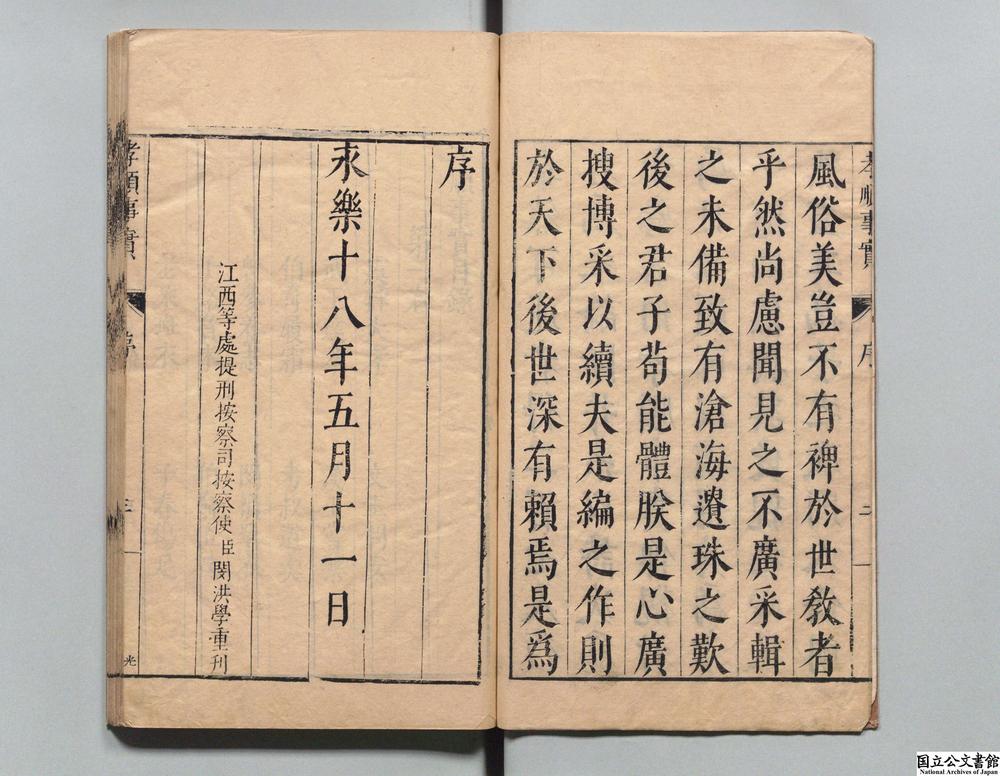 孝順事實
序
二
風俗美豈不有裨於世敎者
乎然尚慮聞見之不廣采輯
之未備致有滄海遺珠之歎
後之君子苟能體朕是心廣
搜博采以續夫是編之作則
於天下後世深有賴焉是爲
序
永樂十八年五月十一日
江西等處提刑按察司按察使臣閔洪學重刊
孝順事實
序
三
光
国立公文書館
National Archives of Japan